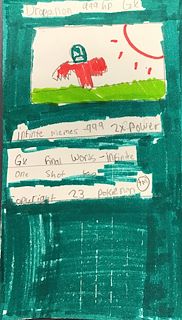 Drapalion 999 hp GX
Infinite memes -999 2x power
GX final works - Infinite
One shot
copyright 23 pokemon